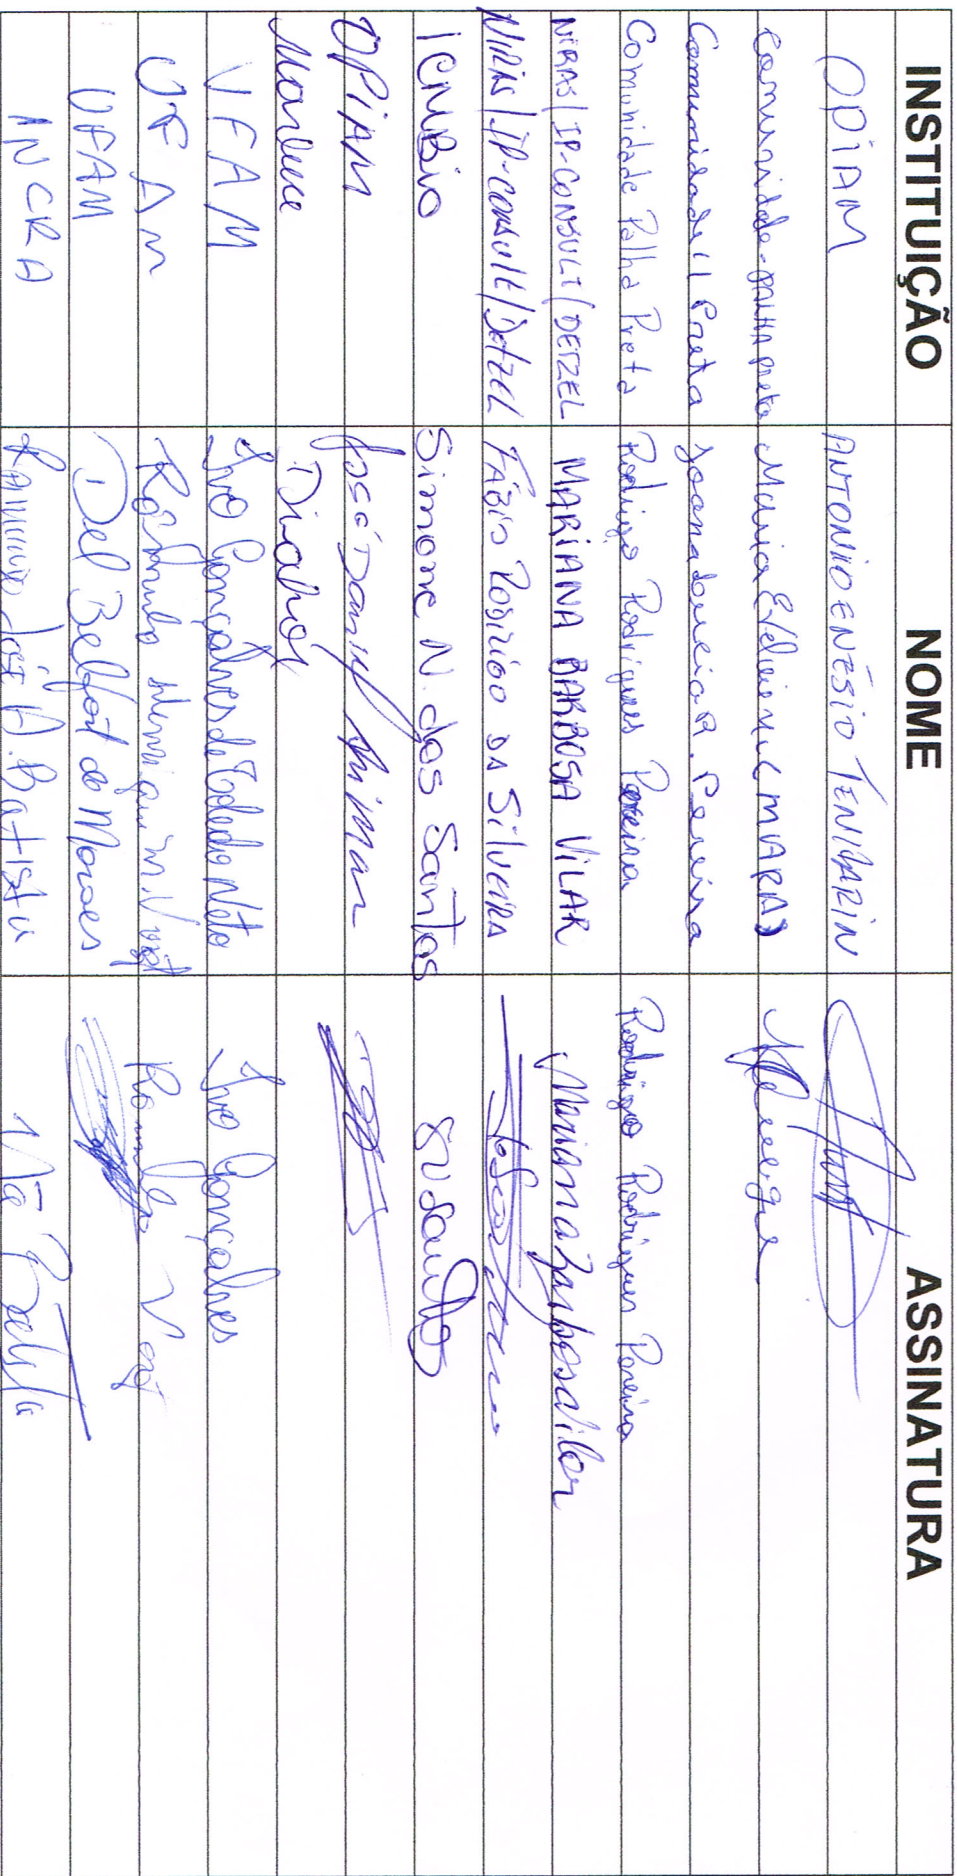 INSTITUIÇÃO NOME ASSINATURA
OPIAM ANTONIO ENÉSIO TENHARIN
comunidade-palha preta Maria
Comunidade Preta Joana R. Pereira
Comunidade Palha Preta Rodrigo Rodrigues Pereira Rodrigo Rodrigues Pereira
NIRAS/IP-CONSULT/DETZEL MARIANA BARBOSA VILAR Mariana Barbosa Vilar
NIRAS/IP-consult/Detzel FÁBIO RODRIGO DA SILVEIRA
ICMBio Simone N. dos Santos
OPIAM José
Marlene Diahoi
UFAM Ivo Gonçalves de Toledo Neto Ivo Gonçalves
UFAM Rômulo Vogt Romulo Vogt
UFAM Del Belfort de Moraes
INCRA RAIMUNDO José A. Batista